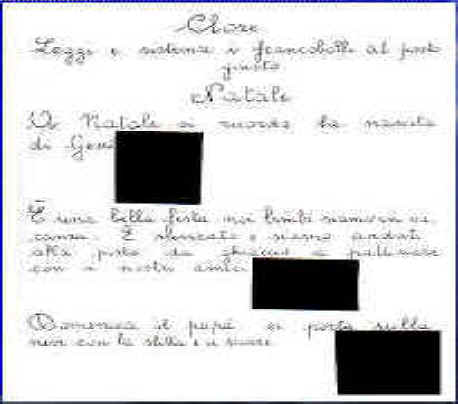 Leggi e sistema i francobolli al posto
giusto
Natale
A Natale si ricorda la nascita
di Gesù
È una bella festa noi bimbi siamo in va
canza. È e siamo andati
alla pista da ghiaccio a pattinare
con i nostri amici
Domenica il papà ci porta sulla
neve con la slitta e a sciare